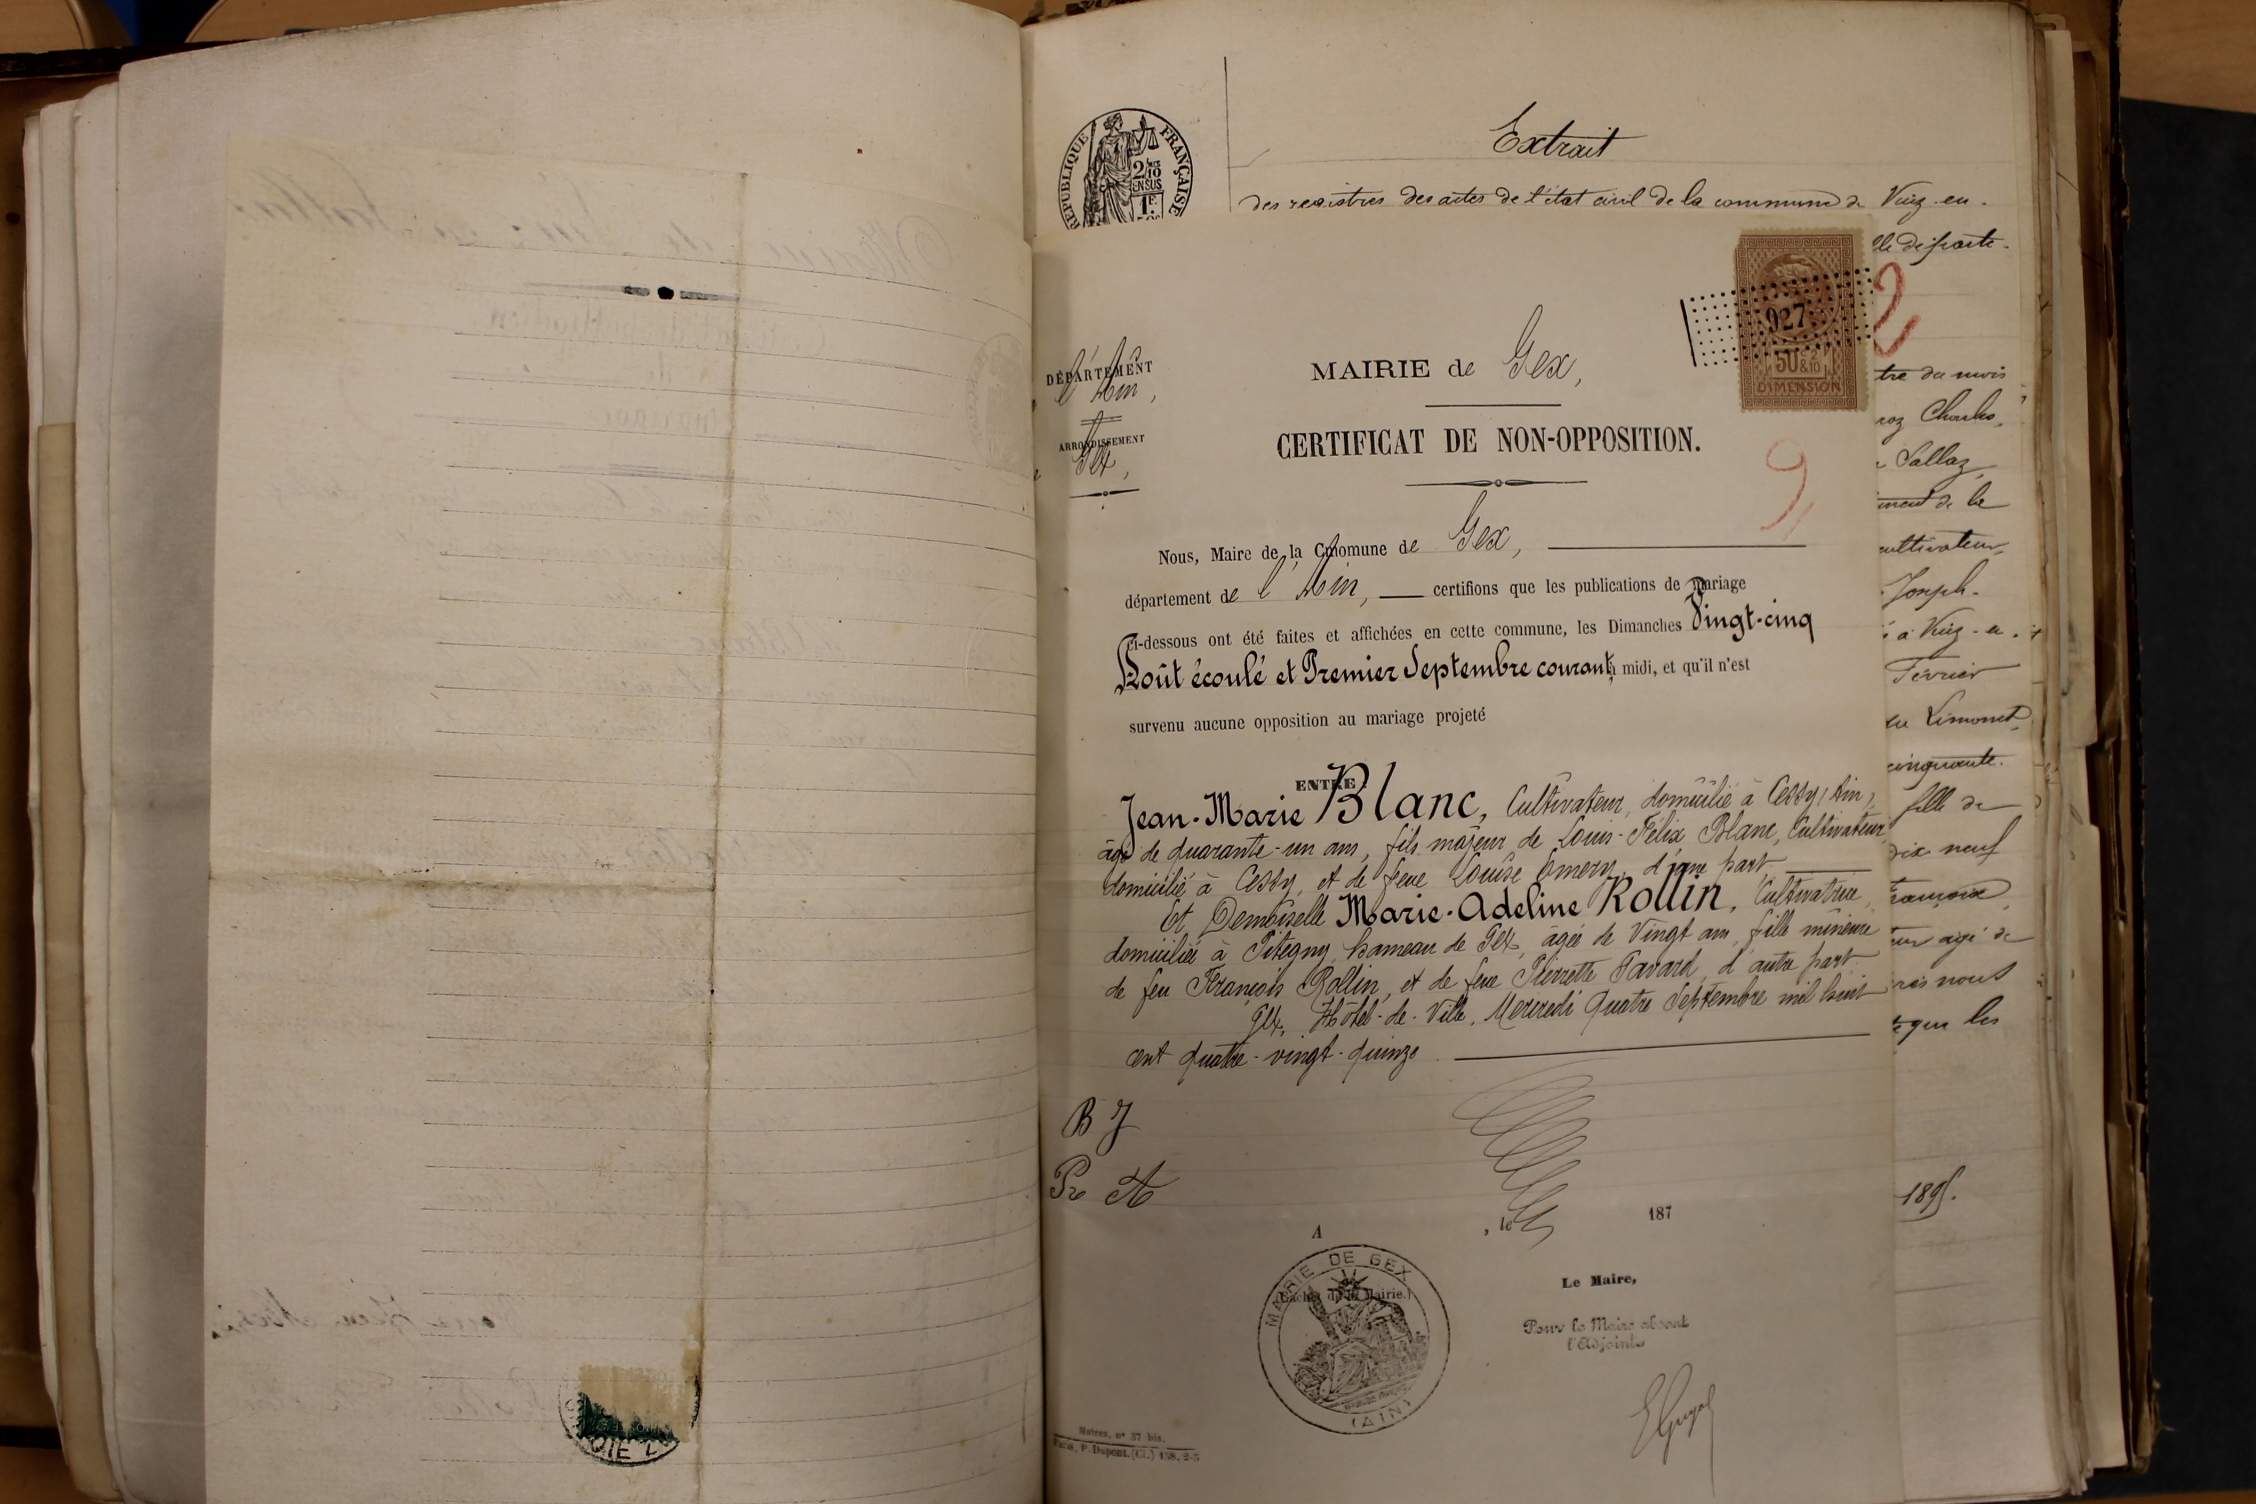 Extrait
des registres des actes de l'état civil de la commune de Viuz-en-
RÉPUBLIQUE FRANÇAISE
2/10
EN SUS
1F
lle départe-
927
50c & 2/10
DIMENSION
2
DÉPARTEMENT
de l'Ain,
ARRONDISSEMENT
de Gex,
MAIRIE de Gex,
CERTIFICAT DE NON-OPPOSITION.
9
Nous, Maire de la Cmomune de Gex,
département de l'Ain, certifions que les publications de mariage
ci-dessous ont été faites et affichées en cette commune, les Dimanches Vingt-cinq
Août écoulé et Premier Septembre courant, à midi, et qu'il n'est
survenu aucune opposition au mariage projeté
ENTRE
Jean-Marie Blanc, Cultivateur, domicilié à Cessy (Ain),
âgé de quarante-un ans, fils majeur de Louis-Félix Blanc, Cultivateur,
domicilié à Cessy, et de feue Louise Emery, d'une part
Et Demoiselle Marie-Adeline Rollin, Cultivatrice,
domiciliée à Pitegny, hameau de Gex, âgée de Vingt ans, fille mineure
de feu François Rollin, et de feue Pierrette Favard, d'autre part.
Gex, Hôtel-de-Ville, Mercredi Quatre Septembre mil huit
cent quatre-vingt-quinze
tre du mois
roz Charles,
Sallaz,
ment de la
cultivateur,
Joseph-
à Viuz-en-
Février
du Limonet,
cinquante-
fille de
dix neuf
françoise,
eur âgé de
nous
que les
1895.
B J
Pr A
A , le 187
MAIRIE DE GEX
(Cachet de la Mairie.)
(AIN)
Le Maire,
Pour le Maire absent
l'Adjoint
Maires, n° 37 bis.
Paris, P. Dupont. (Cl.)